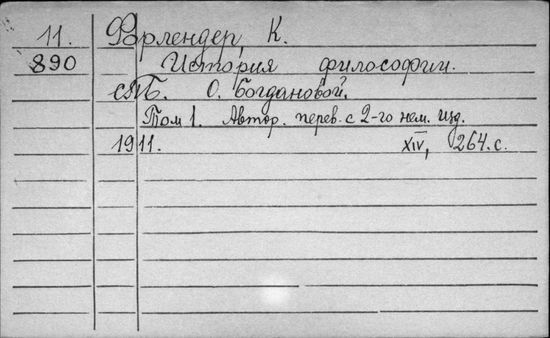 11. Форлендер, К.
890 История философии.
СПБ. О. Богдановой.
Том 1. Автор. перев. с 2-го нем. изд.
1911. XIV, 264 с.